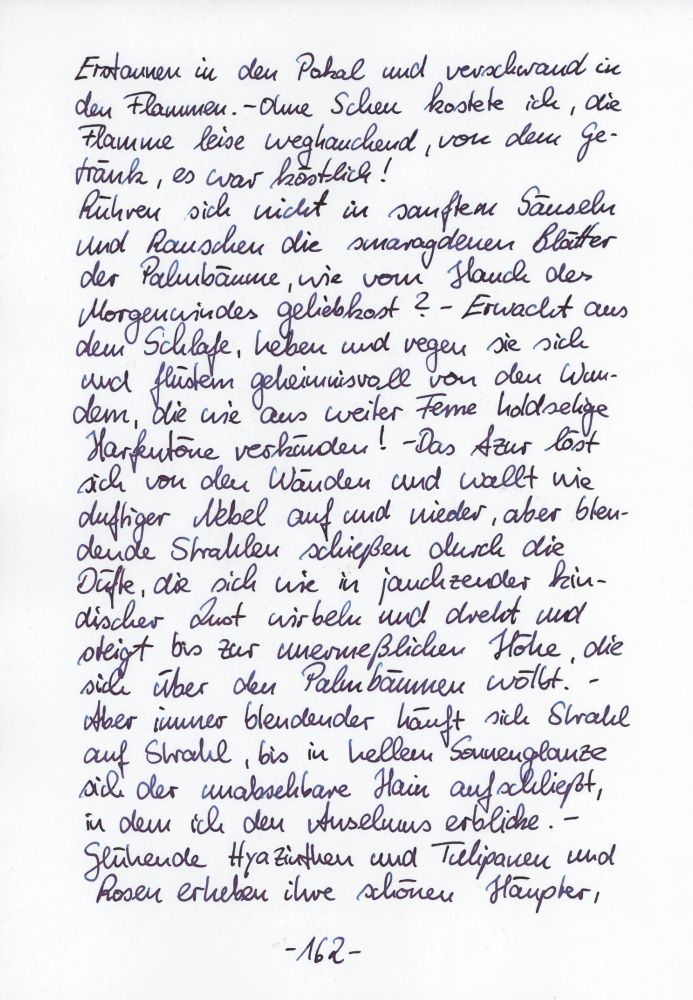 Erstaunen in den Pokal und verschwand in
den Flammen. - Ohne Scheu kostete ich, die
Flamme leise weghauchend, von dem Ge-
tränk, es war köstlich!
Rühren sich nicht in sanftem Säuseln
und Rauschen die smaragdenen Blätter
der Palmbäume, wie vom Hauch des
Morgenwindes geliebkost? - Erwacht aus
dem Schlafe, heben und regen sie sich
und flüstern geheimnisvoll von den Wun-
dern, die wie aus weiter Ferne holdselige
Harfentöne verkünden! - Das Azur löst
sich von den Wänden und wallt wie
duftiger Nebel auf und nieder, aber blen-
dende Strahlen schießen durch die
Düfte, die sich wie in jauchzender kin-
discher Lust wirbeln und dreht und
steigt bis zur unermeßlichen Höhe, die
sich über den Palmbäumen wölbt. -
Aber immer blendender häuft sich Strahl
auf Strahl, bis in hellem Sonnenglanze
sich der unabsehbare Hain aufschließt,
in dem ich den Anselmus erblicke. -
Glühende Hyazinthen und Tulipanen und
Rosen erheben ihre schönen Häupter,
-162-